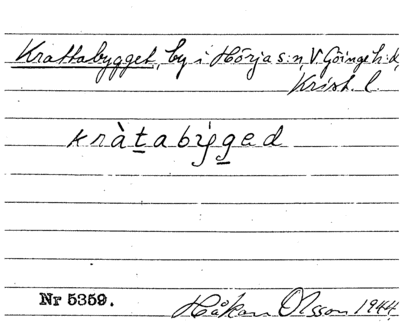 Krattabygget, by i Hörja s:n, V. Göinge h:d,
Krist. l.
kràtabýged
Nr 5359.
Håkan Olsson 1944